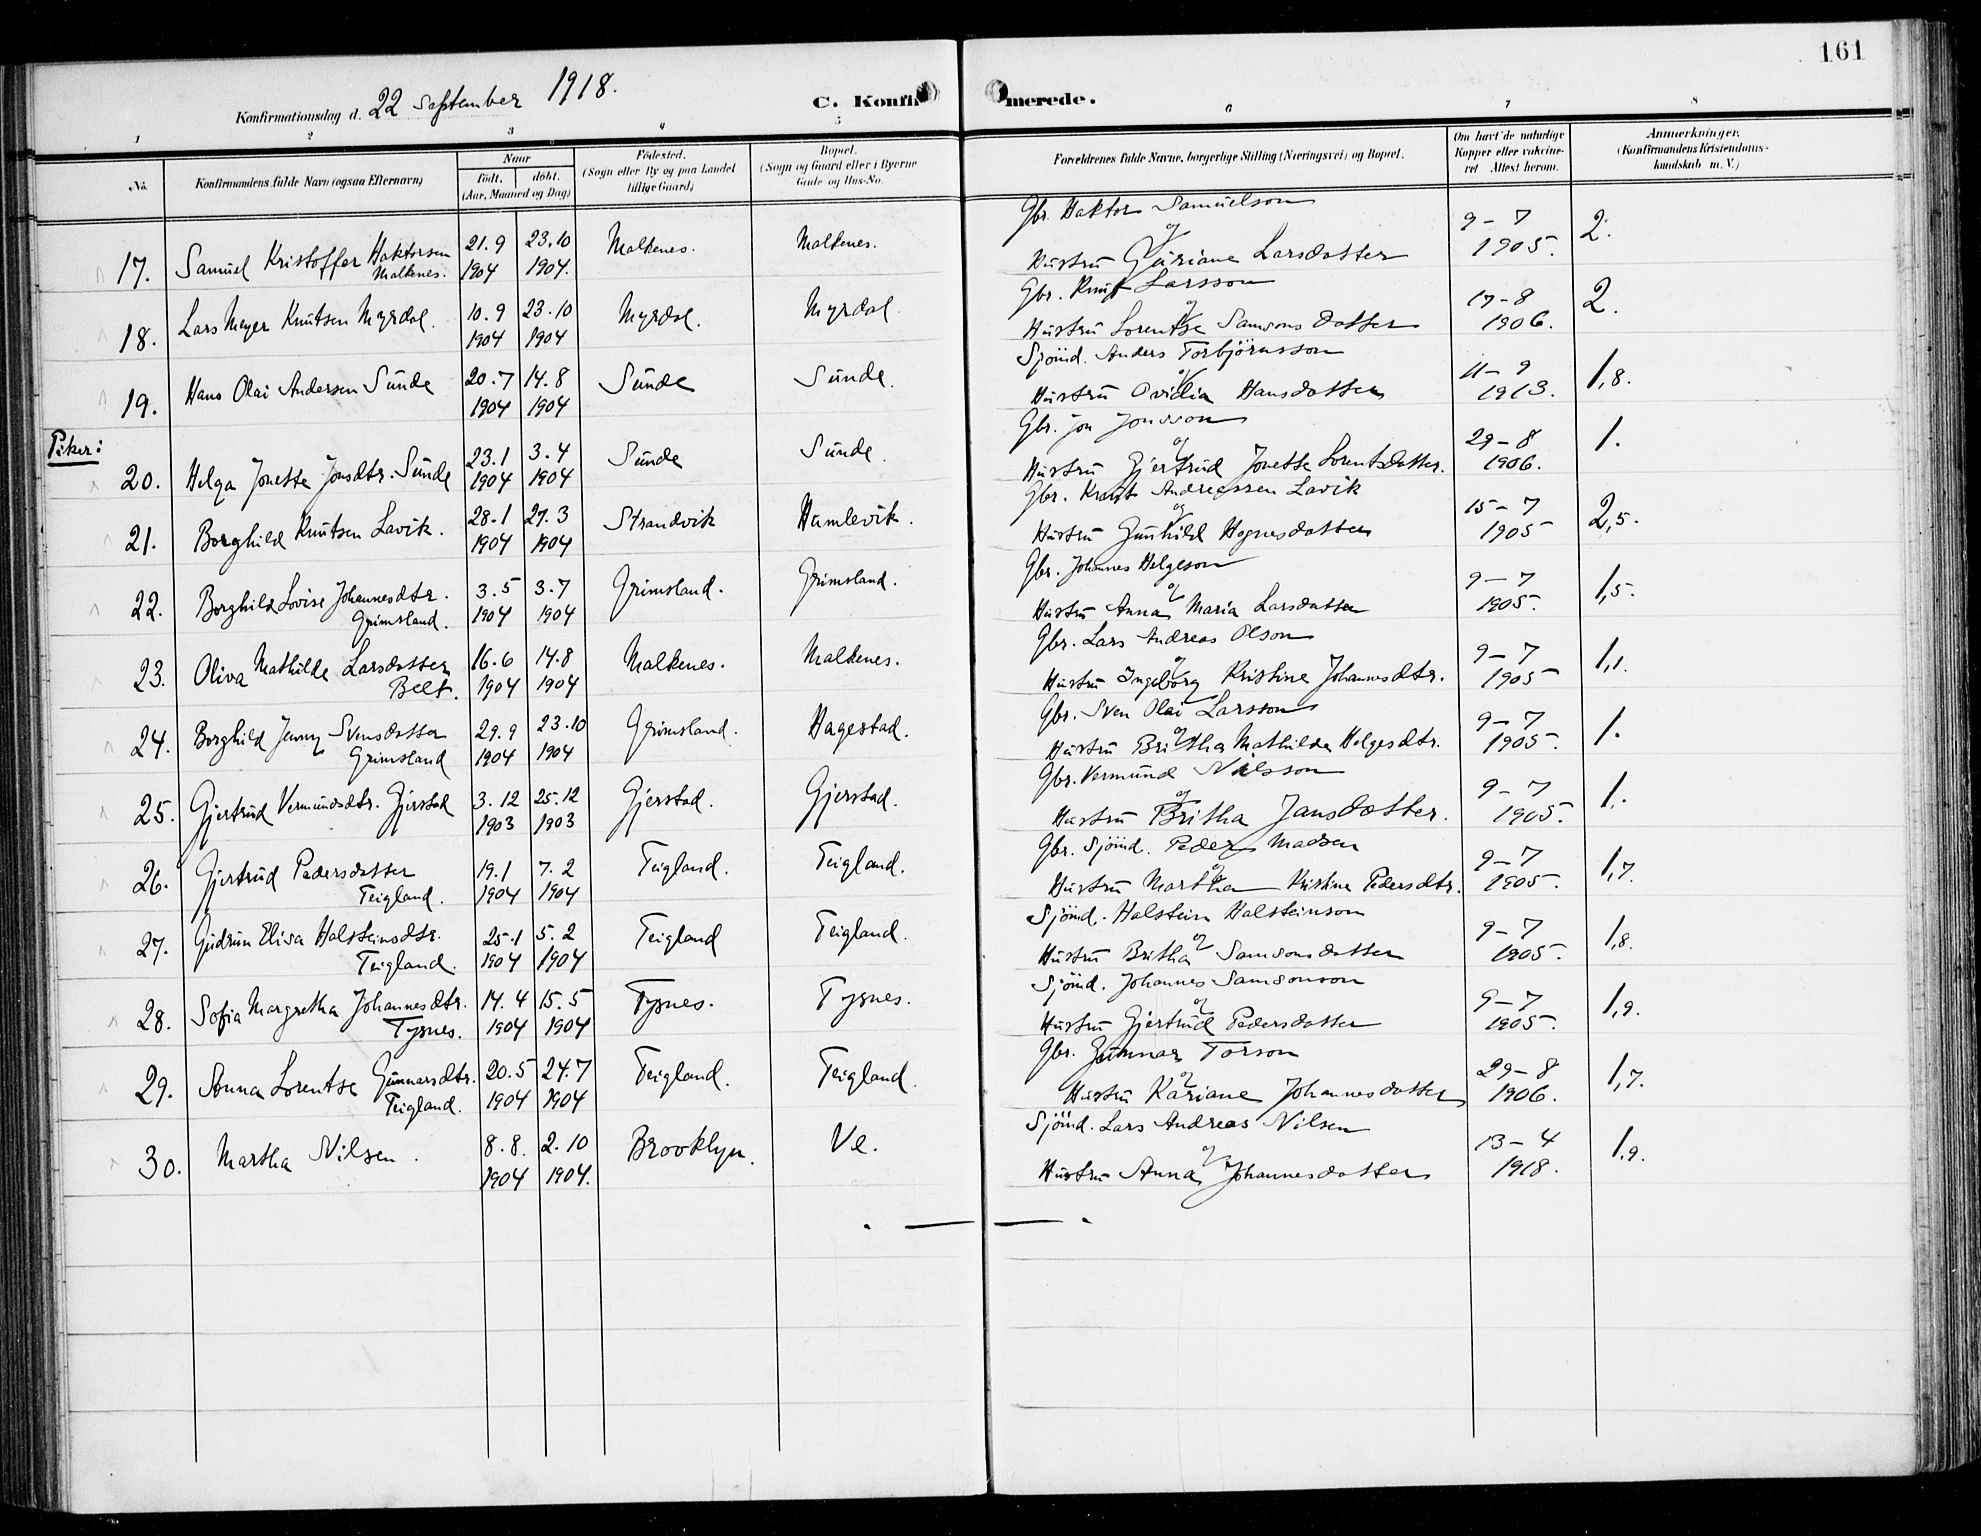 161
Konfirmationsdag d. 22 September 1918.
C. Konfirmerede.
1 2 3 4 5 6 7 8
No.
Konfirmandens fulde Navn (ogsaa Efternavn)
Naar
födt. döbt.
(Aar, Maaned og Dag)
Födested.
(Sogn eller By og paa Landet
tillige Gaard)
Bopæl.
(Sogn og Gaard eller i Byerne
Gade og Hus-No.
Forældrenes fulde Navne, borgerlige Stilling (Næringsvei) og Bopæl.
Om havt de naturlige
Kopper eller vakcine-
ret Attest herom.
Anmærkninger,
(Konfirmandens Kristendoms-
kundskab m. V.)
Gbr. Haktor Samuelson
17. Samuel Kristoffer Haktorsen 21.9 23.10 Malkenes. Malkenes. og 9-7 2.
Malkenes. 1904 1904. Hustru Gjariane Larsdatter 1905.
Gbr. Knut Larsson
18. Lars Meyer Knutsen Myrdal. 10.9 23.10 Myrdal. Myrdal. og 17-8 2.
1904 1904 Hustru Lorentse Samsonsdatter 1906.
Sjömd. Anders Torbjörnsson
19. Hans Olai Andersen Sunde 20.7 14.8 Sunde Sunde. og 11-9 1,8.
1904 1904 Hustru Ovidia Hansdatter 1913.
Piker:
Gbr. Jon Jonsson
20. Helga Jonette Jonsdtr. Sunde 23.1 3.4 Sunde Sunde. og 29-8 1.
1904 1904 Hustru Gjertrud Jonette Lorentsdatter. 1906.
Gbr. Knut Andreassen Lavik
21. Borghild Knutsen Lavik. 28.1 27.3 Strandvik Hamlevik. og 15-7 2,5.
1904 1904 Hustru Gunhild Hognesdatter 1905
Gbr. Johannes Helgeson
22. Borghild Lovise Johannesdtr. 3.5 3.7 Grimsland. Grimsland. og 9-7 1,5.
Grimsland. 1904 1904 Hustru Anna Maria Larsdatter 1905.
Gbr. Lars Andreas Olson
23. Oliva Mathilde Larsdatter 16.6 14.8 Malkenes. Malkenes. og 9-7 1,1.
Belt. 1904 1904 Hustru Ingeborg Kristine Johannesdtr. 1905
Gbr. Sven Olai Larsson
24. Borghild Jenny Svensdatter 29.9 23.10 Grimsland. Hagestad. og 9-7 1.
Grimsland 1904 1904 Hustru Britha Mathilda Helgesdtr. 1905.
Gbr. Vermund Nilsson
25. Gjertrud Vermundsdtr. Gjerstad 3.12 25.12 Gjerstad. Gjerstad. og 9-7 1.
1903 1903 Hustru Britha Jansdatter. 1905.
Gbr. Sjömd. Peder Madsen
26. Gjertrud Pedersdatter 19.1 7.2 Teigland. Teigland. og 9-7 1,7.
Teigland. 1904 1904 Hustru Martha Kristine Pedersdtr. 1905.
Sjömd. Halstein Halsteinson
27. Gudrun Elisa Halsteinsdtr. 25.1 5.2 Teigland Teigland. og 9-7 1,8.
Teigland. 1904 1904 Hustru Britha Samsonsdatter 1905.
Sjömd. Johannes Samsonson
28. Sofia Margretha Johannesdtr. 14.4 15.5 Tysnes. Tysnes. og 9-7 1,9.
Tysnes. 1904 1904 Hustru Gjertrud Pedersdatter 1905.
Gbr. Gunnar Torson
29. Anna Lorentse Gunnarsdtr. 20.5 24.7 Teigland. Teigland. og 29-8 1,7.
Teigland. 1904 1904 Hustru Kariane Johannesdatter 1906.
Sjömd. Lars Andreas Nilsen
30. Martha Nilsen. 8.8. 2.10 Brooklyn. Ve. og 13-4 1,9.
1904 1904. Hustru Anna Johannesdatter 1918.